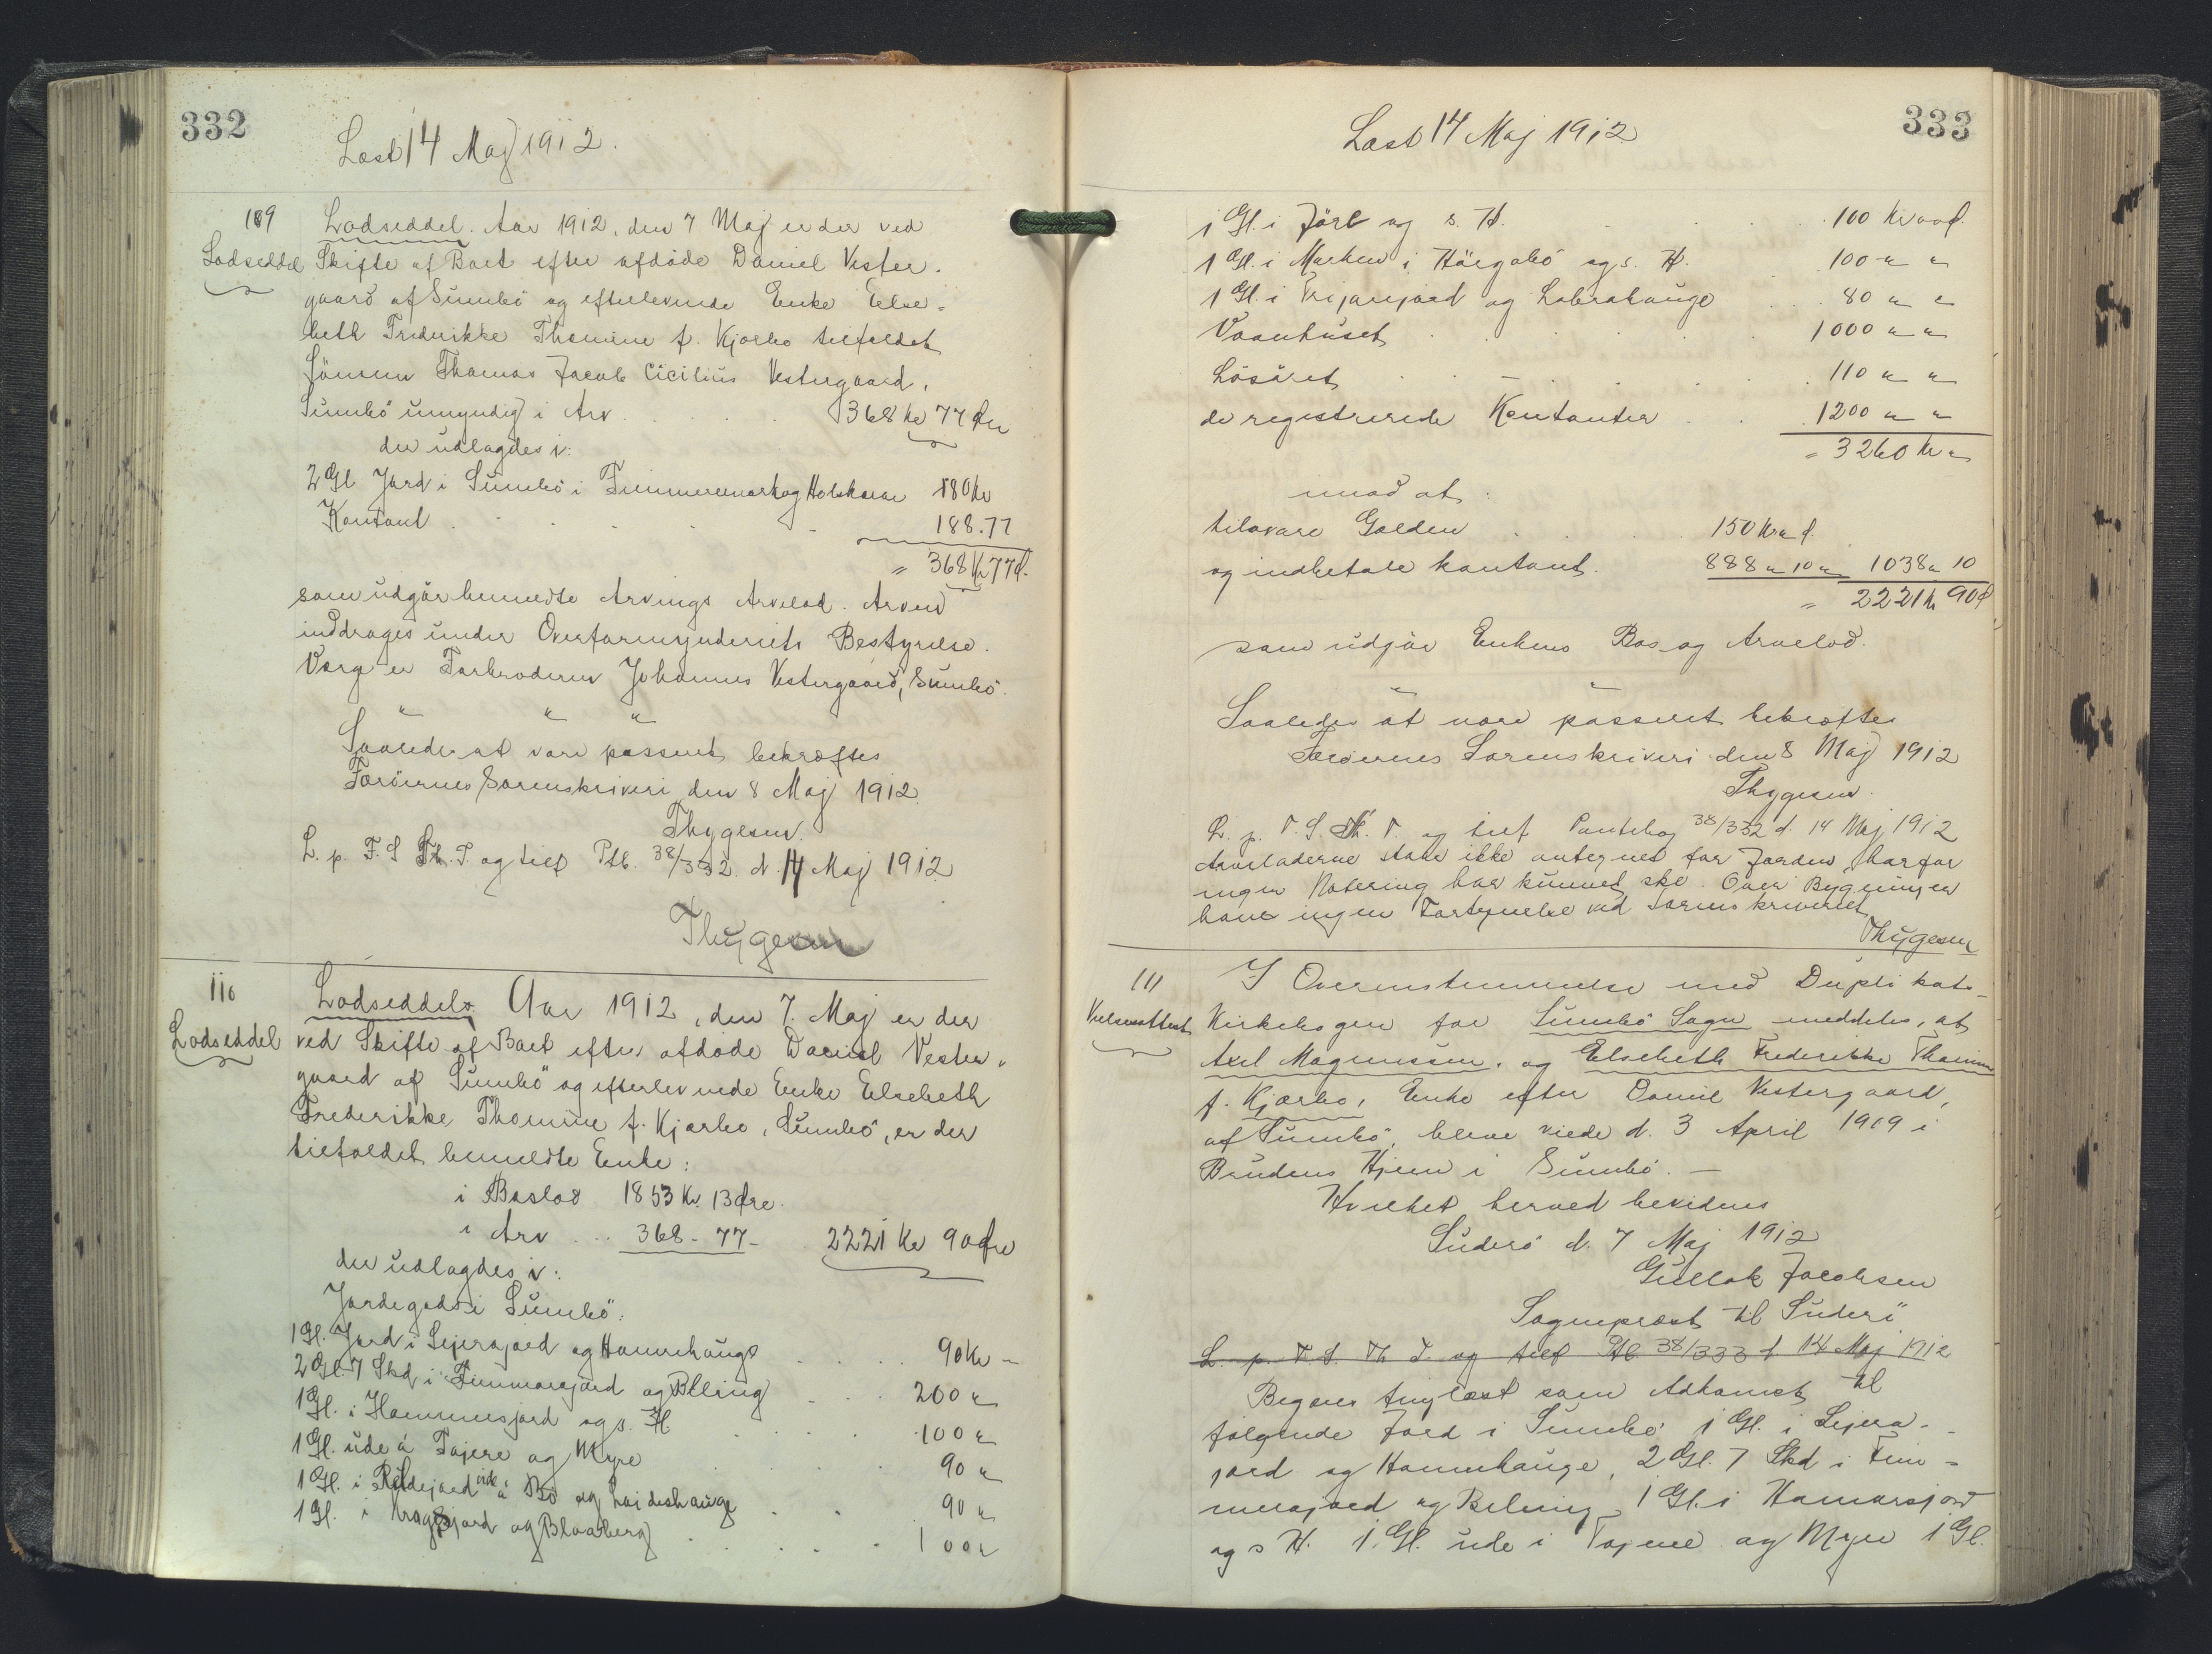 332
Læst 14 Maj 1912.
109
Lodseddel
Lodseddel. Aar 1912, den 7 Maj er der ved
Skifte af Boet efter afdøde Daniel Vester-
gaard af Sumbö og efterlevende Enke Else-
beth Frederikke Thomine f. Kjærbo tilfaldet
Sönnen Thomas Jacob Cicilius Vestergaard,
Sumbö umyndig i Arv . . . 368 Kr 77 Øre
der udlagdes i:
2 Gl Jord i Sumbö i Fimmerenmark og Holskvar 180 Kr
Kontant . . . . . 188.77
= 368 Kr 77 Ø.
som udgør bemeldte Arvings Arvelod. Arven
inddrages under Overformynderiets Bestyrelse.
Værge er Farbroderen Johannes Vestergaard, Sumbö.
" " "
Saaledes at være passeret bekræftes
Færöernes Sorenskriveri den 8 Maj 1912.
Thygesen.
L. p. F. S Th. T. og tilf Ptb. 38/332. d. 14 Maj 1912.
Thygesen
110
Lodseddel
Lodseddel. Aar 1912, den 7. Maj er der
ved Skifte af Boet efter afdøde Daniel Vester-
gaard af Sumbö og efterlevende Enke Elsebeth
Frederikke Thomine f. Kjærbo, Sumbö, er der
tilfaldet bemeldte Enke:
i Boslod 1853 Kr. 13 Øre.
i Arv . . . 368 - 77 - 2221 Kr 90 Øre
der udlagdes i:
Jordegods i Sumbö:
1 Gl. Jord i Lejerajord og Hamrehauge . . . . 90 Kr -
2 Gl. 7 Skd i Fimmarajord og Belling . . . 200 "
1 Gl. i Hammersjord og s. H. . . . . 100 "
1 Gl. ude á Tajere og Myre . . . 90 "
1 Gl. i Rildejord vid á Bö og Leideshauge . . 90 "
1 Gl. i Kragsjord og Blaaberg . . . . 100 "
333
Læst 14 Maj 1912.
1 Gl. i Jörl og s. H. . . . 100 Kr 00 Ø.
1 Gl. i Marken i Hörgabö og s. H. 100 " "
1 Gl. i Trijarejord og Labrahauge . . 80 " "
Vaanhuset . . . . 1000 " "
Lösöret . . . . 110 " "
de registrerede Kontanter . . 1200 " "
= 3260 Kr "
imod at :
tilsvare Gælden . . . 150 Kr " Ø.
og indbetale kontant. 888 " 10 " 1038 " 10
= 2221 Kr 90 Ø
som udgör Enkens Bos- og Arvelod.
" "
Saaledes at være passeret bekræftes
Færöernes Sorenskriveri den 8 Maj 1912
Thygesen.
L. p. F. S. Th. T. og tilf Pantebog 38/332 d. 14 Maj 1912
Arveladerne staar ikke antegnet for Jorden, hvorfor
ingen Notering har kunnet ske. Over Bygningen
haves ingen Fortegnelse ved Sorenskriveriet
Thygesen
111
Vielsesattest
I Overensstemmelse med Duplikat-
Kirkebogen for Sumbö Sogn meddeles, at
Axel Magnussen, og Elsebeth Frederikke Thomine
f. Kjærbo, Enke efter Daniel Vestergaard,
af Sumbö, bleve viede d. 3 April 1909 i
Brudens Hjem i Sumbö. —
Hvilket herved bevidnes
Suderö d. 7 Maj 1912
Gullak Jacobsen
Sognepræst til Suderö
L. p. F. S. Th T og tilf Ptb. 38/333 d. 14 Maj 1912
Begæres tinglæst som Adkomst til
følgende Jord i Sumbö 1 Gl. i Lejera-
jord og Hamrehauge, 2 Gl. 7 Skd i Fim-
merajord og Belling 1 Gl. i Hamarsjord
og s H. 1. Gl. ude i Tajere og Myre 1 Gl.